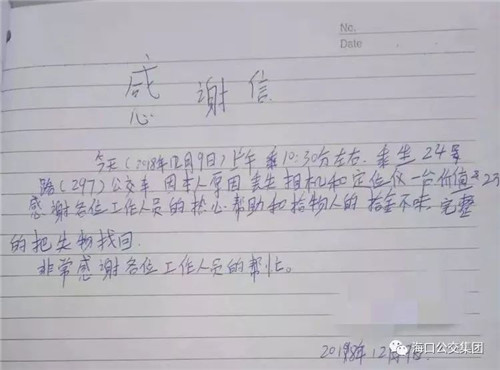 No.
Date
感谢信
今天(2018年12月9日)上午乘10:30分左右.乘坐24号
路(297)公交车因本人原因丢失相机和定位仪一台价值
感谢各位工作人员的热心帮助和拾物人的拾金不昧.完整
的把失物找回.
非常感谢各位工作人员的帮忙。
2018年12月
海口公交集团